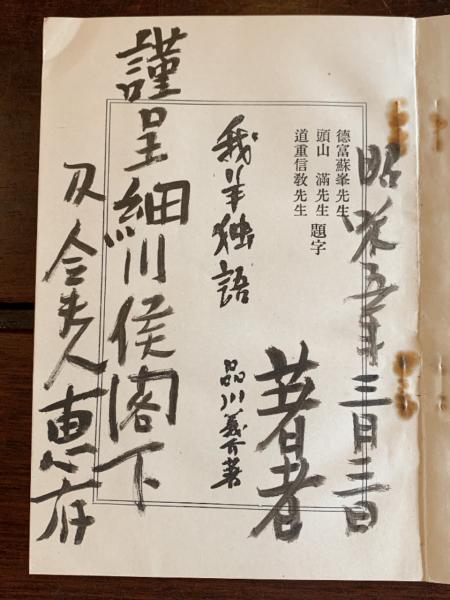 昭和五年三月三日
德富蘇峯先生
頭山 満先生 題字
道重信敎先生
著者
我羊独語 品川義介著
謹呈細川侯閣下
及令夫人恵存